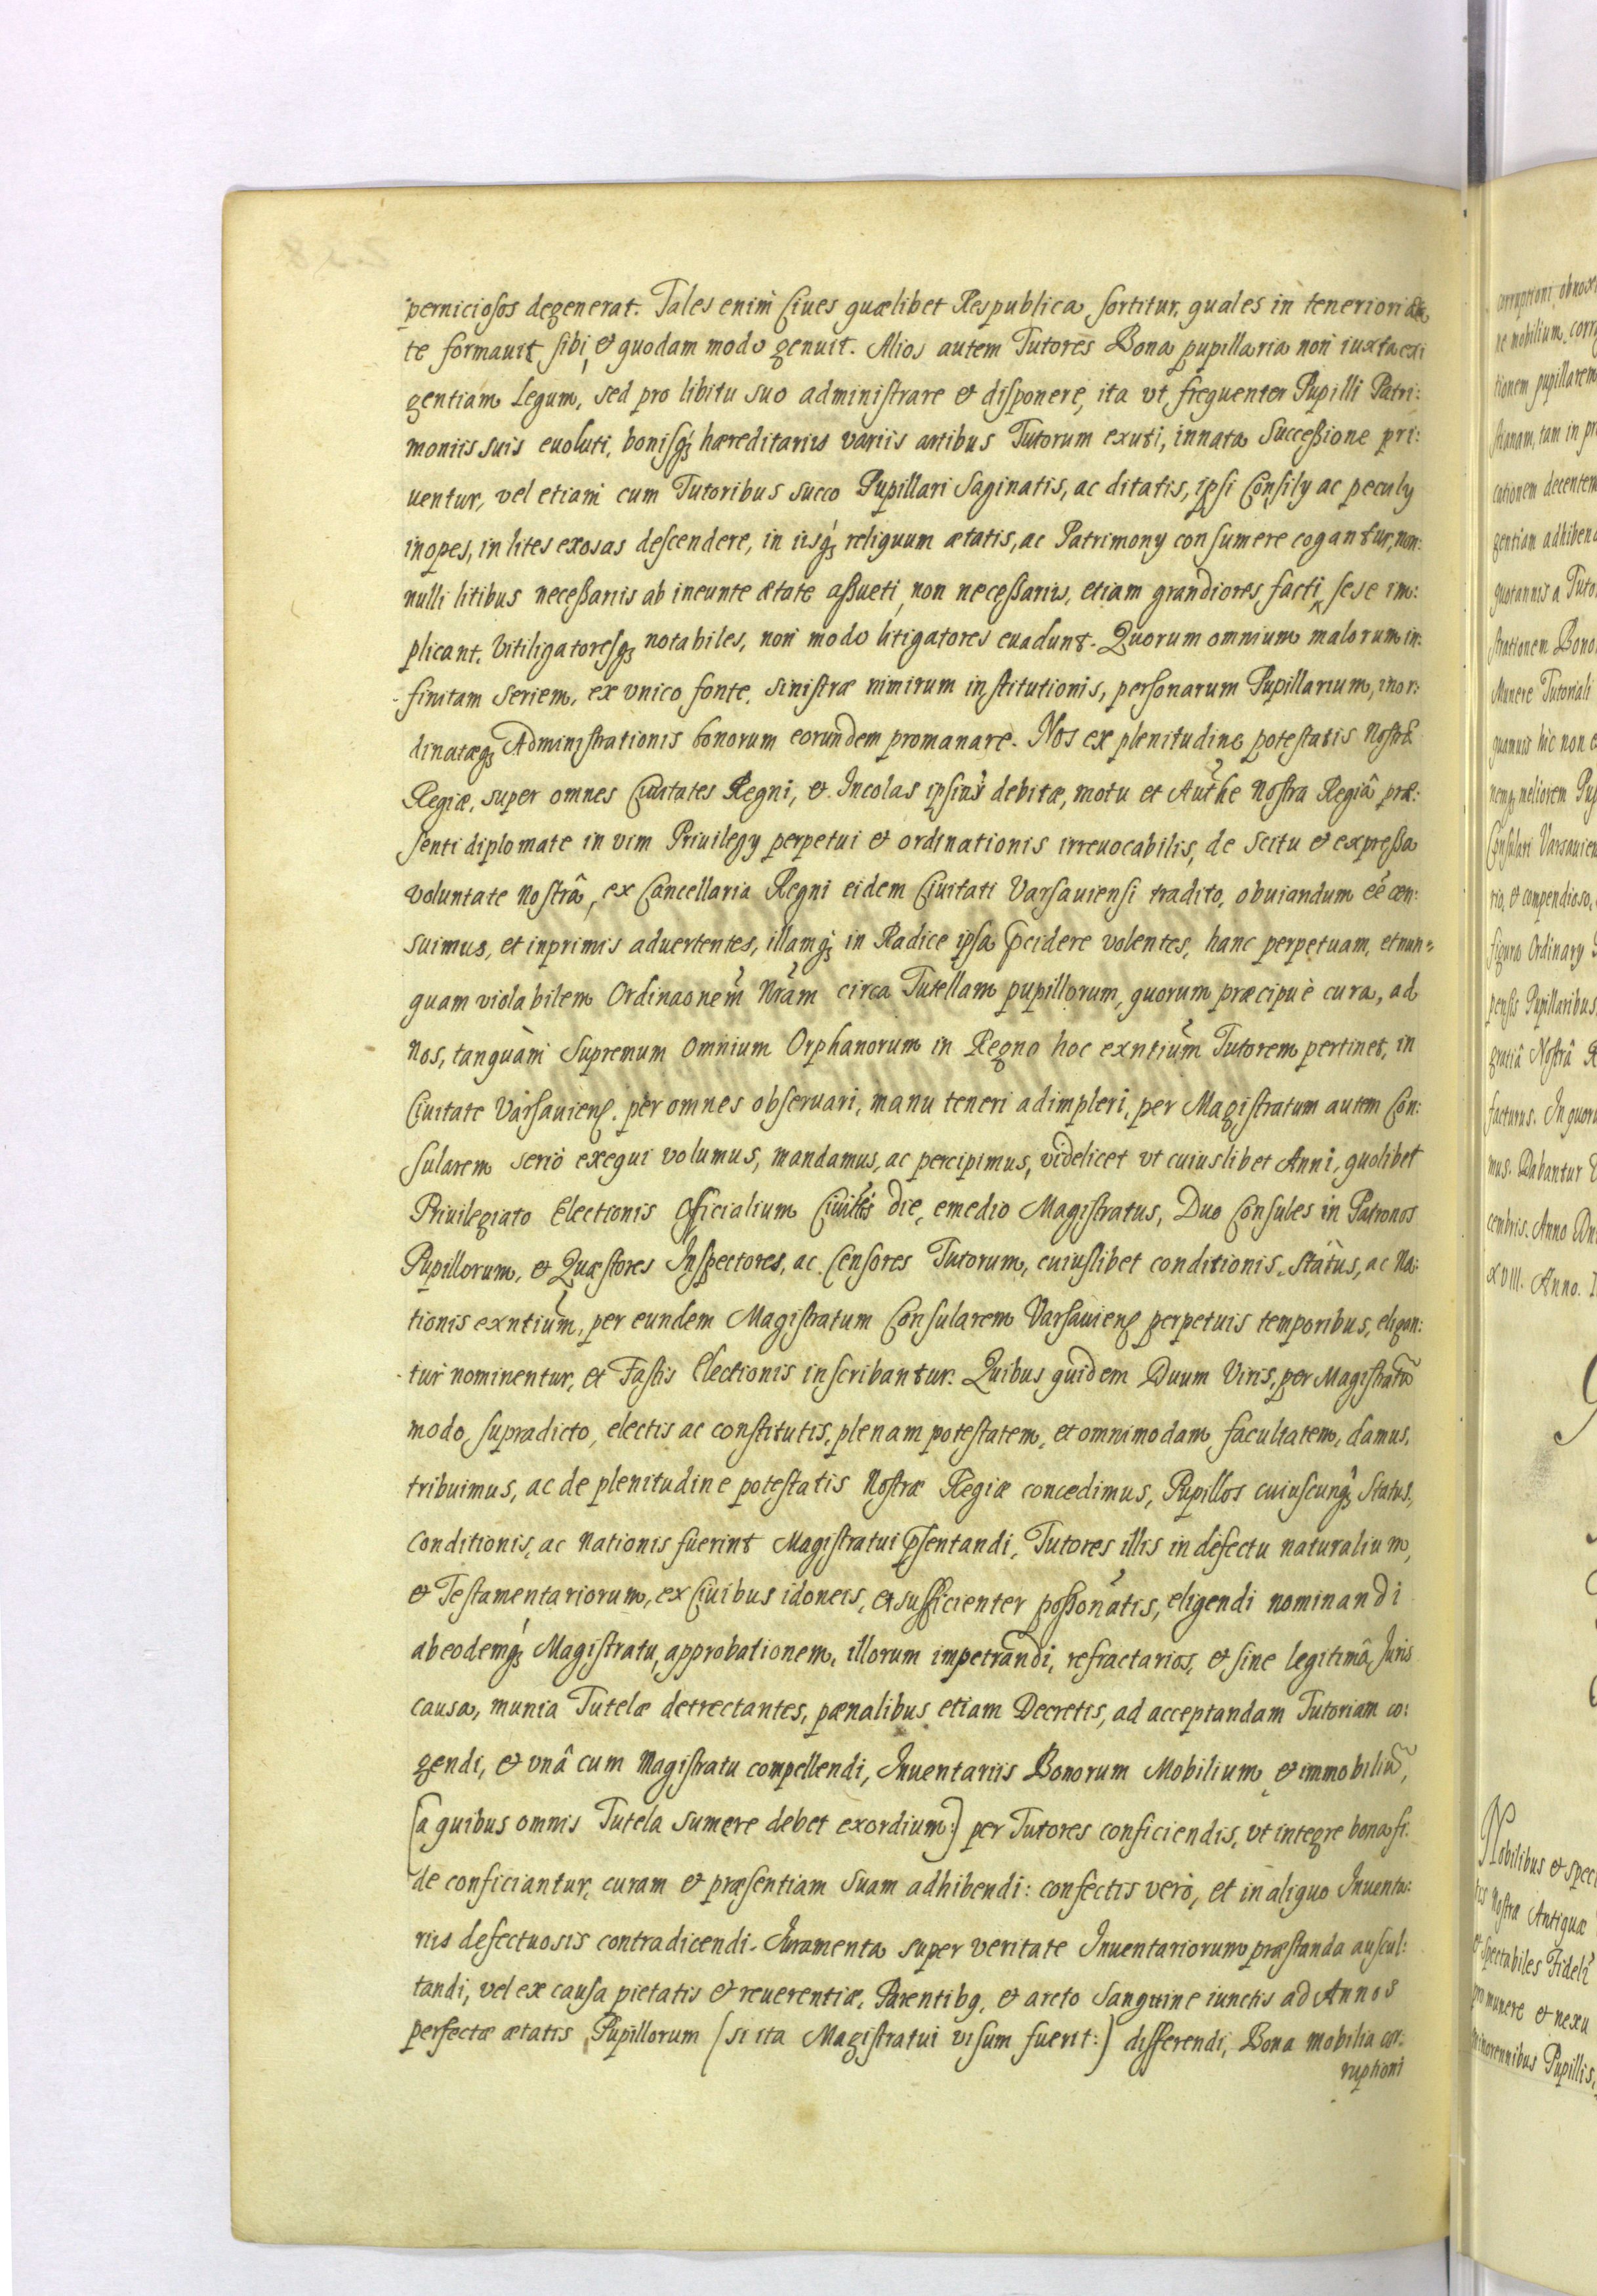 perniciosos degenerat. Tales enim Ciues quælibet Respublica sortitur, quales in teneriori æta
te formauit sibi, et quodam modo genuit. Alios autem Tutores Bona pupillaria non iuxta exi
gentiam Legum, sed pro libitu suo administrare et disponere, ita vt frequenter Pupilli Patri:
moniis suis euoluti, bonisq́ꝫ hæreditariis variis artibus Tutorum exuti, innata Successione pri:
uentur, vel etiam cum Tutoribus succo Pupillari Saginatis, ac ditatis, ipsi Consily ac peculy
inopes, in lites exosas descendere, in iisq́ꝫ reliquum ætatis, ac Patrimony consumere cogantur, non:
nulli litibus necessariis ab ineunte ætate assueti, non necessariis, etiam grandiores facti, sese im:
plicant, Vitiligatoresqꝫ notabiles, non modo litigatores euadunt. Quorum omnium malorum in:
finitam seriem, ex vnico fonte, sinistræ nimirum institutionis, personarum Pupillarium, inor:
dinatæqꝫ Administrationis bonorum eorundem promanare. Nos ex plenitudine potestatis Nostræ
Regiæ, super omnes Ciuitates Regni, et Incolas ipsius debitæ, motu et Authe Nostra Regiâ præ:
senti diplomate in vim Priuilegy perpetui et ordinationis irreuocabilis, de scitu et expressa
voluntate Nostrâ, ex Cancellaria Regni eidem Ciuitati Varsauiensi tradito, obuiandum eé cen:
suimus, et inprimis aduertentes, illamq́ꝫ in Radice ipsa p̃cidere volentes, hanc perpetuam, et nun=
quam violabilem Ordinaonem̃ Nram̃ circa Tutellam pupillorum, quorum præcipuè cura, ad
Nos, tanquàm Supremum Omnium Orphanorum in Regno hoc exntium̃ Tutorem pertinet, in
Ciuitate Varsauienꝭ. per omnes obseruari, manu teneri adimpleri, per Magistratum autem Con:
sularem seriò exequi volumus, mandamus, ac percipimus, videlicet vt cuiuslibet Anni, quolibet
Priuilegiato Electionis Officialium Ciuiltis̃ die, e medio Magistratus, Duo Consules in Patronos
Pupillorum, et Quæstores Inspectores, ac Censores Tutorum, cuiuslibet conditionis, Statûs, ac Na:
tionis exntium̃, per eundem Magistratum Consularem Varsauienꝭ perpetuis temporibus, eligan:
tur nominentur, et Fastis Electionis inscribantur. Quibus quidem Duum Viris, per Magistratũ
modo supradicto, electis ac constitutis, plenam potestatem, et omnimodam facultatem, damus,
tribuimus, ac de plenitudine potestatis Nostræ Regiæ concedimus, Pupillos cuiuscunq́ꝫ Status,
Conditionis, ac Nationis fuerint Magistratui p̃sentandi, Tutores illis in defectu naturalium,
et Testamentariorum, ex Ciuibus idoneis, et sufficienter possonãtis, eligendi nominandi
ab eodemq́ꝫ Magistratu, approbationem, illorum impetrandi, refractarios, et sine legitimâ Juris
causa, munia Tutelæ detrectantes, pænalibus etiam Decretis, ad acceptandam Tutoriam co:
gendi, et vnâ cum Magistratu compellendi, Inuentariis Bonorum Mobilium et immobiliũ,
(a quibus omnis Tutela sumere debet exordium:) per Tutores conficiendis, vt integre bona fi:
de conficiantur, curam et præsentiam suam adhibendi: confectis verò, et in aliquo Inuenta:
riis defectuosis contradicendi. Juramenta super veritate Inuentariorum præstanda auscul:
tandi, vel ex causa pietatis et reuerentiæ, Parentibꝗ, et arcto Sanguine iunctis ad Annos
perfectæ ætatis Pupillorum (si ita Magistratui visum fuerit:) differendi, Bona mobilia cor:
ruptioni